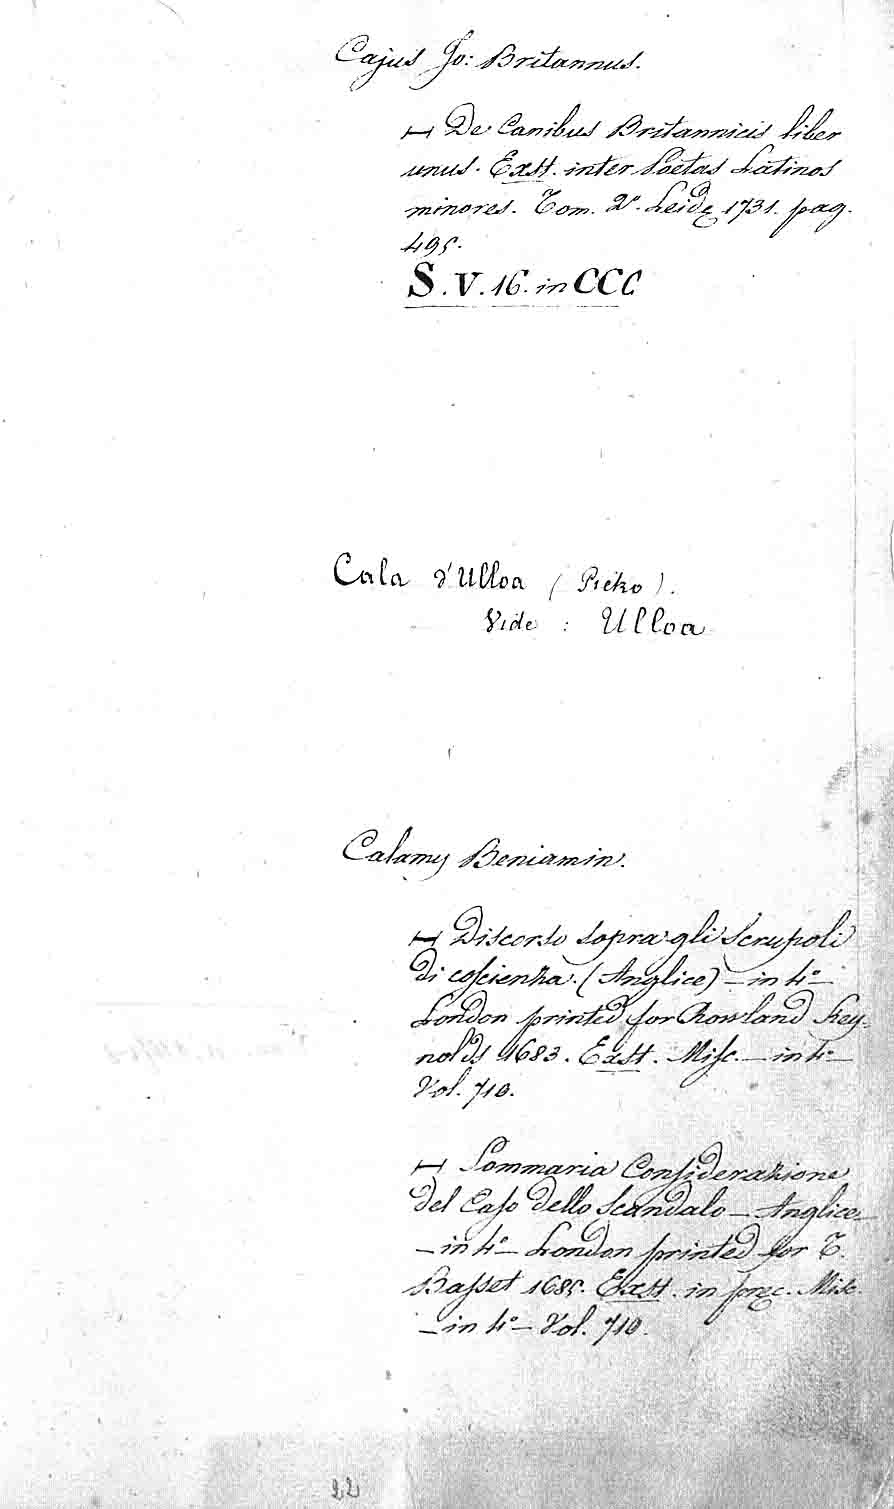 Cajus Jo: Britannus.
— De Canibus Britannicis liber
unus. Exst. inter Poetas Latinos
minores. Tom. 2º. Leidę 1731. pag.
495.
S. V. 16. in CCC
Cala d'Ulloa (Pietro).
Vide : Ulloa
Calamy Beniamin.
— Discorso sopra gli Scrupoli
di coscienza. (Anglice) — in 4º —
London printed for Rowland Rey-
nolds 1683. Exst. Misc. — in 4º —
Vol. 710.
— Sommaria Considerazione
del Caso dello Scandalo — Anglice —
— in 4º — London printed for T.
Basset 1685. Exst. in pręc. Misc.
— in 4º — Vol. 710.
22